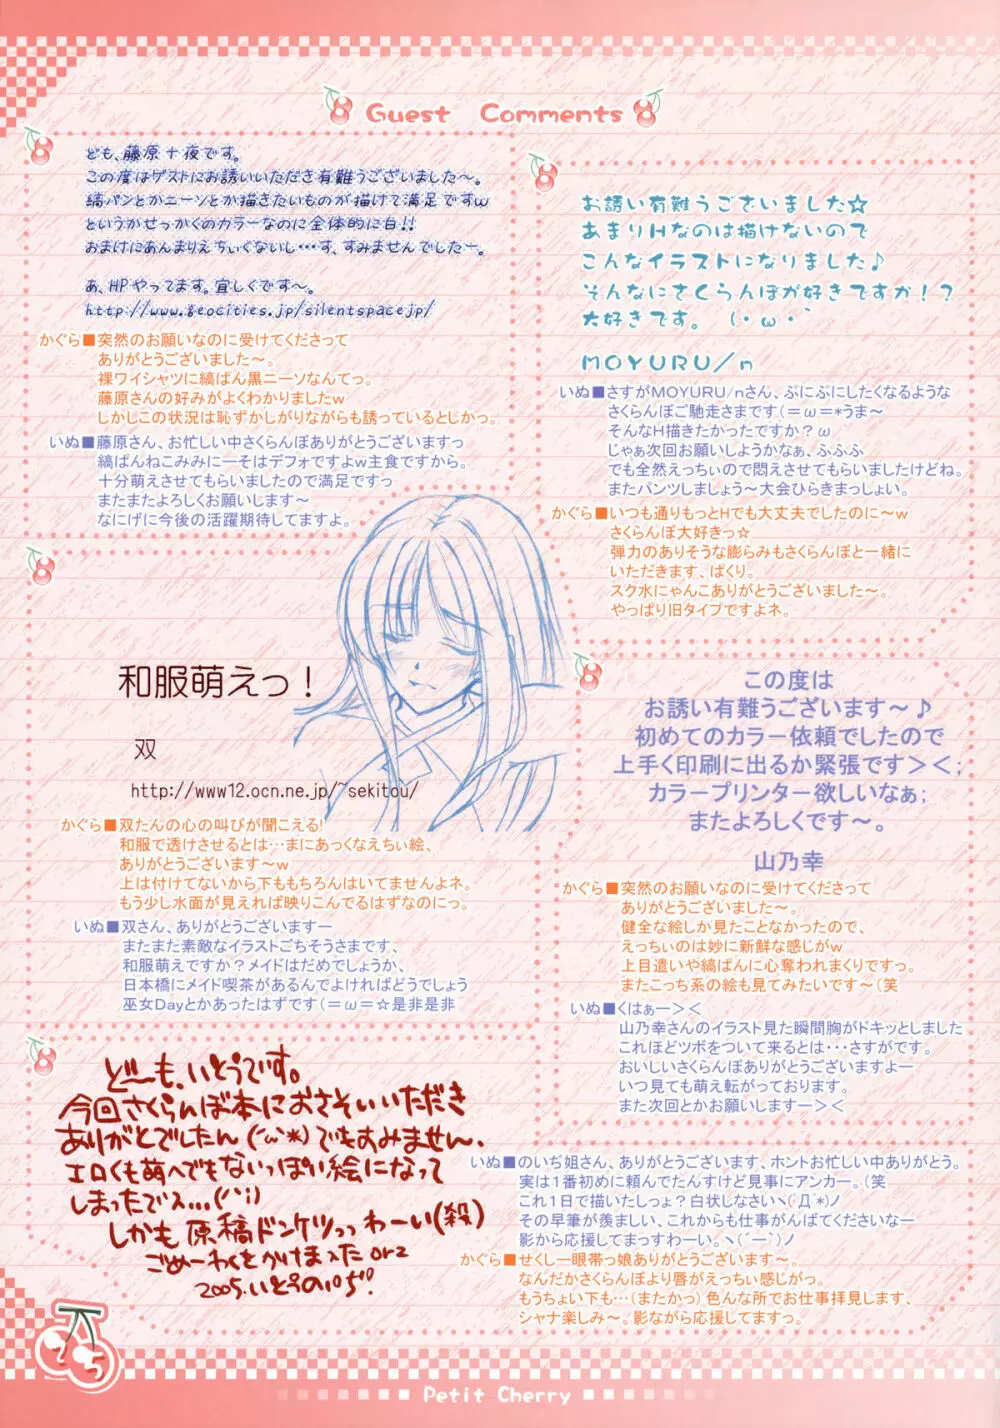 Guest Comments
ども、藤原十夜です。
この度はゲストにお誘いいただき有難うございました〜。
縞パンとかニーソとか描きたいものが描けて満足ですw
というかせっかくのカラーなのに全体的に白!!
おまけにあんまりえちぃくないし…す、すみませんでしたー。
あ、HPやってます。宜しくです〜。
http://www.geocities.jp/silentspacejp/
かぐら■突然のお願いなのに受けてくださって
ありがとうございました〜。
裸ワイシャツに縞ぱん黒ニーソなんてっ。
藤原さんの好みがよくわかりましたw
しかしこの状況は恥ずかしがりながらも誘っているとしかっ。
いぬ■藤原さん、お忙しい中さくらんぼありがとうございますっ
縞ぱんねこみみにーそはデフォですよw主食ですから。
十分萌えさせてもらいましたので満足ですっ
またまたよろしくお願いします〜
なにげに今後の活躍期待してますよ。
お誘い有難うございました☆
あまりHなのは描けないので
こんなイラストになりました♪
そんなにさくらんぼが好きですか!?
大好きです。 (・ω・`
MOYURU/n
いぬ■さすがMOYURU/nさん、ぷにぷにしたくなるような
さくらんぼご馳走さまです(=ω=*うま〜
そんなH描きたかったですか?ω
じゃぁ次回お願いしようかなぁ、ふふふ
でも全然えっちぃので悶えさせてもらいましたけどね。
またパンツしましょう〜大会ひらきまっしょい。
かぐら■いつも通りもっとHでも大丈夫でしたのに〜w
さくらんぼ大好きっ☆
弾力のありそうな膨らみもさくらんぼと一緒に
いただきます、ぱくり。
スク水にゃんこありがとうございました〜。
やっぱり旧タイプですよネ。
和服萌えっ!
双
http://www12.ocn.ne.jp/~sekitou/
かぐら■双たんの心の叫びが聞こえる!
和服で透けさせるとは…まにあっくなえちぃ絵、
ありがとうございます〜w
上は付けてないから下ももちろんはいてませんよネ。
もう少し水面が見えれば映りこんでるはずなのにっ。
いぬ■双さん、ありがとうございますー
またまた素敵なイラストごちそうさまです、
和服萌えですか?メイドはだめでしょうか、
日本橋にメイド喫茶があるんでよければどうでしょう
巫女Dayとかあったはずです(=ω=☆是非是非
この度は
お誘い有難うございます〜♪
初めてのカラー依頼でしたので
上手く印刷に出るか緊張です><;
カラープリンター欲しいなぁ;
またよろしくです〜。
山乃幸
かぐら■突然のお願いなのに受けてくださって
ありがとうございました〜。
健全な絵しか見たことなかったので、
えっちぃのは妙に新鮮な感じがw
上目遣いや縞ぱんに心奪われまくりですっ。
またこっち系の絵も見てみたいです〜(笑
いぬ■くはぁー><
山乃幸さんのイラスト見た瞬間胸がドキッとしました
これほどツボをついて来るとは・・・さすがです。
おいしいさくらんぼありがとうございますよー
いつ見ても萌え転がっております。
また次回とかお願いしますー><
どーも、いとうです。
今回さくらんぼ本におさそいいただき
ありがとでしたん(´ω`*)でもすみません、
エロくも萌へでもないっぽい絵になって
しまったでス...(^^;)
しかも原稿ドンケツっっわーい(殺)
ごめーわくをかけまスた orz
2005.いとうのいぢ!
いぬ■のいぢ姐さん、ありがとうございます、ホントお忙しい中ありがとう。
実は1番初めに頼んでたんすけど見事にアンカー。(笑
これ1日で描いたしょ?白状しなさいヽ(Д´*)ノ
その早筆が羨ましい、これからも仕事がんばてくださいなー
影から応援してまっすわーい。ヽ(´ー`)ノ
かぐら■せくしー眼帯っ娘ありがとうございます〜。
なんだかさくらんぼより唇がえっちぃ感じがっ。
もうちょい下も…(またかっ)色んな所でお仕事拝見します、
シャナ楽しみ〜。影ながら応援してますっ。
25
Petit Cherry